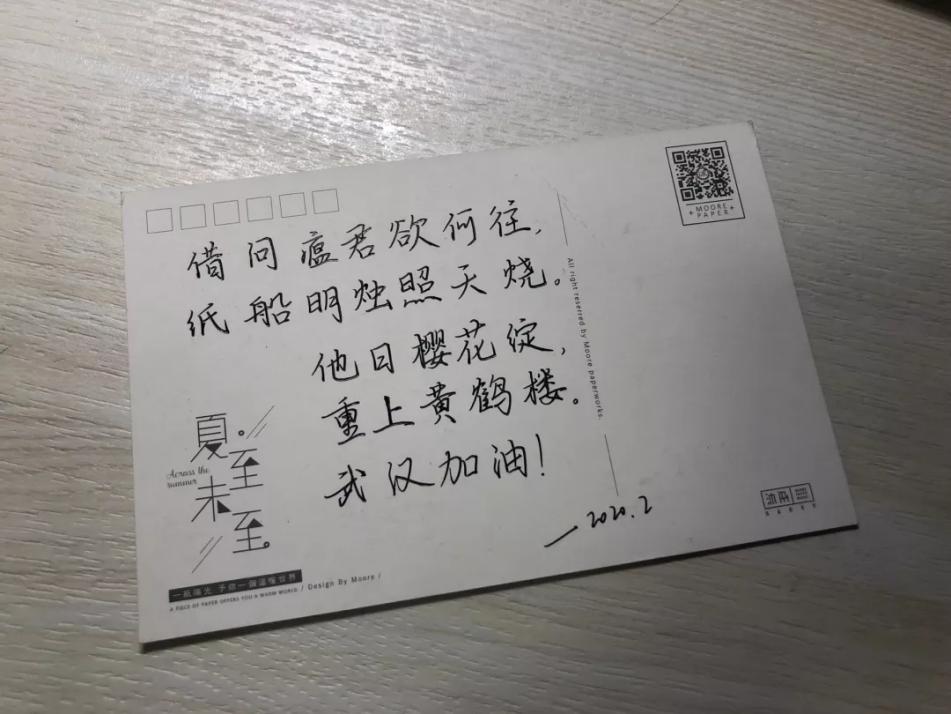 借问瘟君欲何往,
纸船明烛照天烧。
他日樱花绽,
重上黄鹤楼。
武汉加油!
—2020.2
夏。
至
未
至。
Across the
summer
一纸陽光 予你一個溫暖世界 / Design By Moore /
A PIECE OF PAPER OFFERS YOU A WARM WORLD
All right reserred by Moore paperworks.
MOORE
PAPER